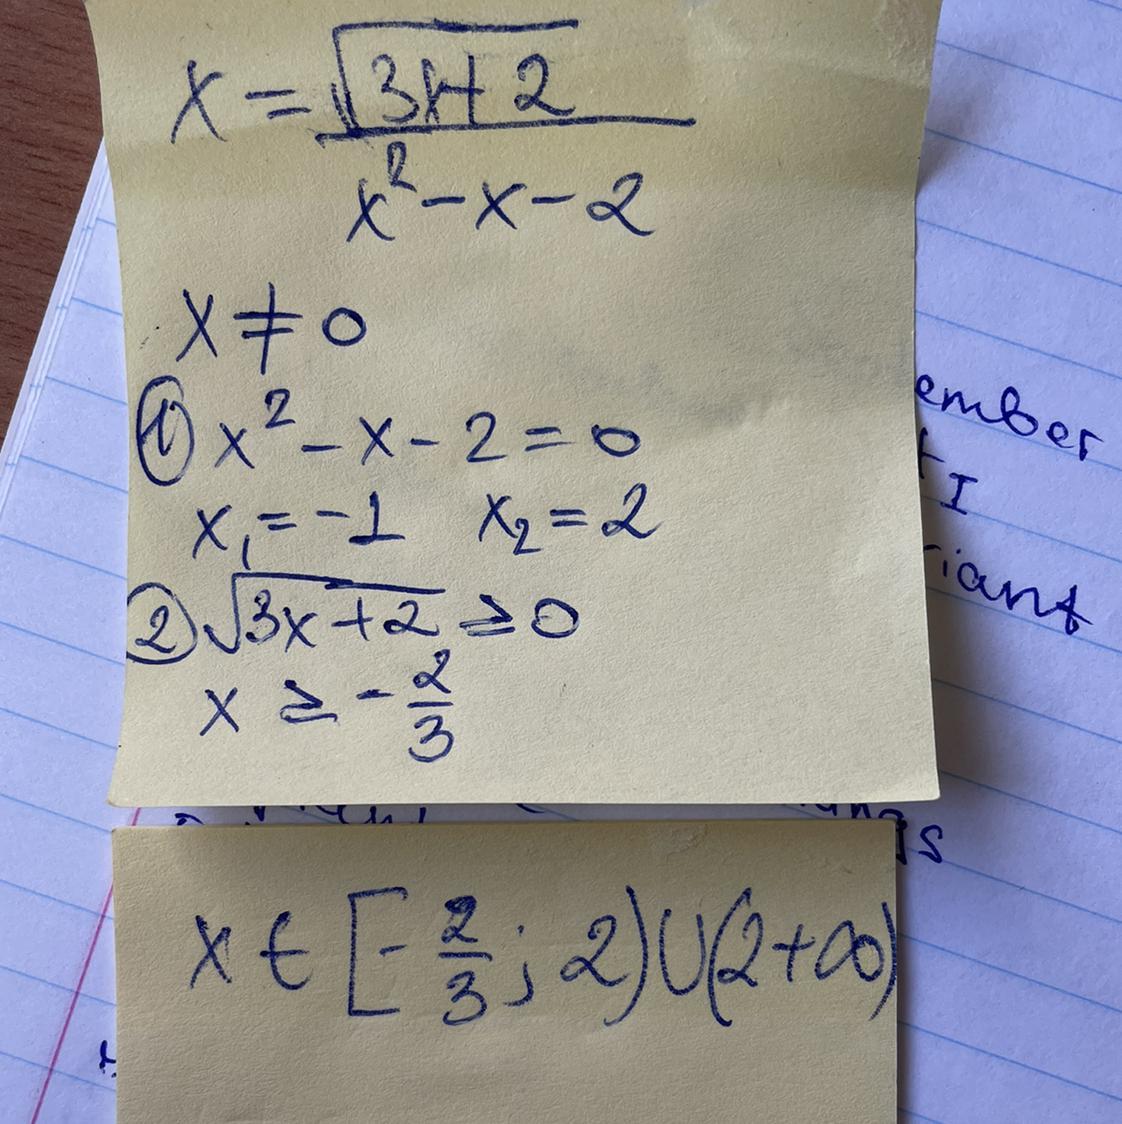 x = √3x+2
x² - x - 2
x ≠ 0
① x² - x - 2 = 0
x₁ = -1 x₂ = 2
② √3x+2 ≥ 0
x ≥ - 2/3
ember
I
riant
x ∈ [- 2/3 ; 2) ∪ (2 +∞)